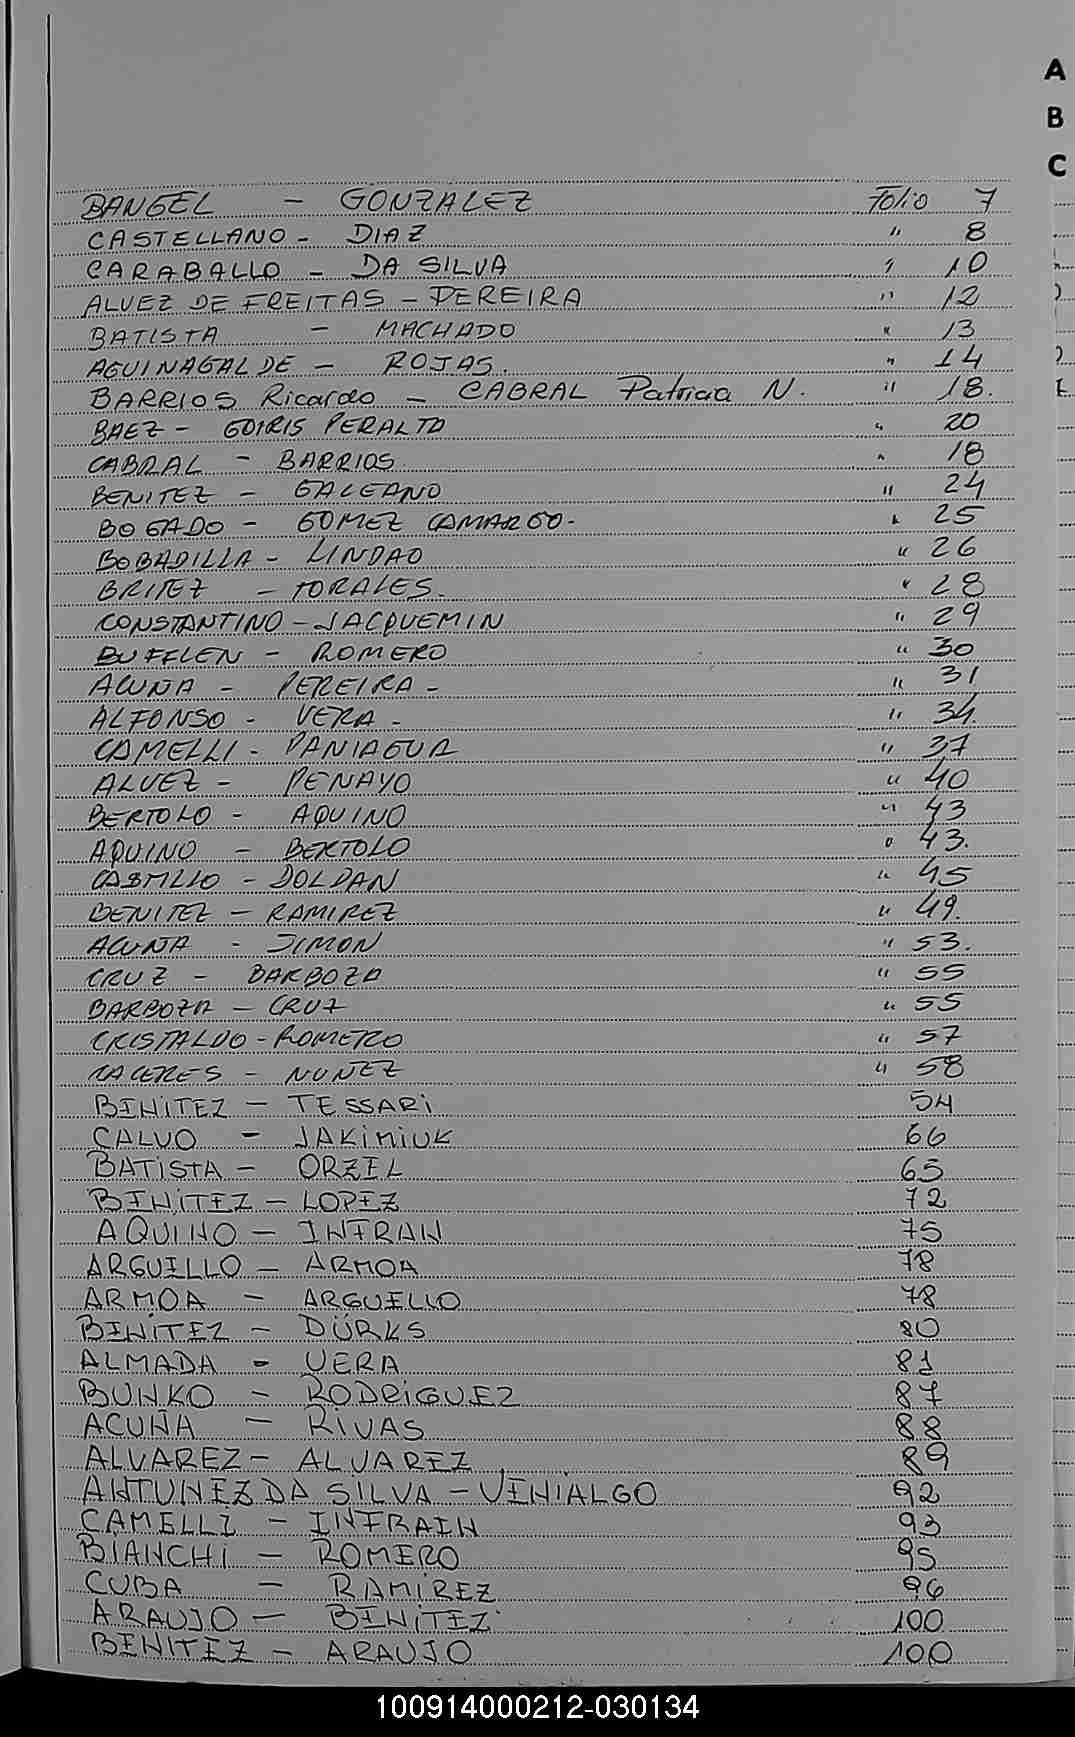 A
B
C
BANGEL - GONZALEZ Folio 7
CASTELLANO - DIAZ " 8
CARABALLO - DA SILVA " 10
ALVEZ DE FREITAS - PEREIRA " 12
BATISTA - MACHADO " 13
AGUINAGALDE - ROJAS. " 14
BARRIOS Ricardo - CABRAL Patricia N. " 18.
BAEZ - GOIRIS PERALTA " 20
CABRAL - BARRIOS " 18
BENITEZ - GALEANO " 24
BOGADO - GOMEZ CAMARGO- " 25
BOBADILLA - LINDAO " 26
BRITEZ - TORALES. " 28
CONSTANTINO - JACQUEMIN " 29
BUFFLEN - ROMERO " 30
ACUNA - PEREIRA - " 31
ALFONSO - VERA - " 34.
CAMELLI - PANIAGUA " 37
ALVEZ - PENAYO " 40
BERTOLO - AQUINO " 43
AQUINO - BERTOLO " 43.
CASTILLO - DOLDAN " 45
BENITEZ - RAMIREZ " 49.
ACUNA - SIMON " 53.
CRUZ - BARBOZA " 55
BARBOZA - CRUZ " 55
CRISTALDO - ROMERO " 57
CACERES - NUÑEZ " 58
BENITEZ - TESSARI 54
CALVO - JAKIMIUK 66
BATISTA - ORZEL 65
BENITEZ - LOPEZ 72
AQUINO - INFRAN 75
ARGUELLO - ARMOA 78
ARMOA - ARGUELLO 78
BENITEZ - DÜRKS 80
ALMADA - VERA 81
BUNKO - RODRIGUEZ 87
ACUÑA - RIVAS 88
ALVAREZ - ALVAREZ 89
ANTUNEZ DA SILVA - VENIALGO 92
CAMELLI - INFRAIN 93
BIANCHI - ROMERO 95
CUBA - RAMIREZ 96
ARAUJO - BENITEZ 100
BENITEZ - ARAUJO 100
100914000212-030134